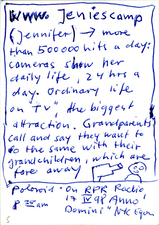 www Jeniescamp
(Jennifer) → more
than 500000 hits a day:
cameras show her
daily life, 24 hrs a
day. Ordinary life
on TV", the biggest
attraction. Grandparents
call and say they want to
do the same with their
grandchildren, which are
fore away
Polaroid: On RPR Radio
8 am 17 IV 98 Anno
Domini"